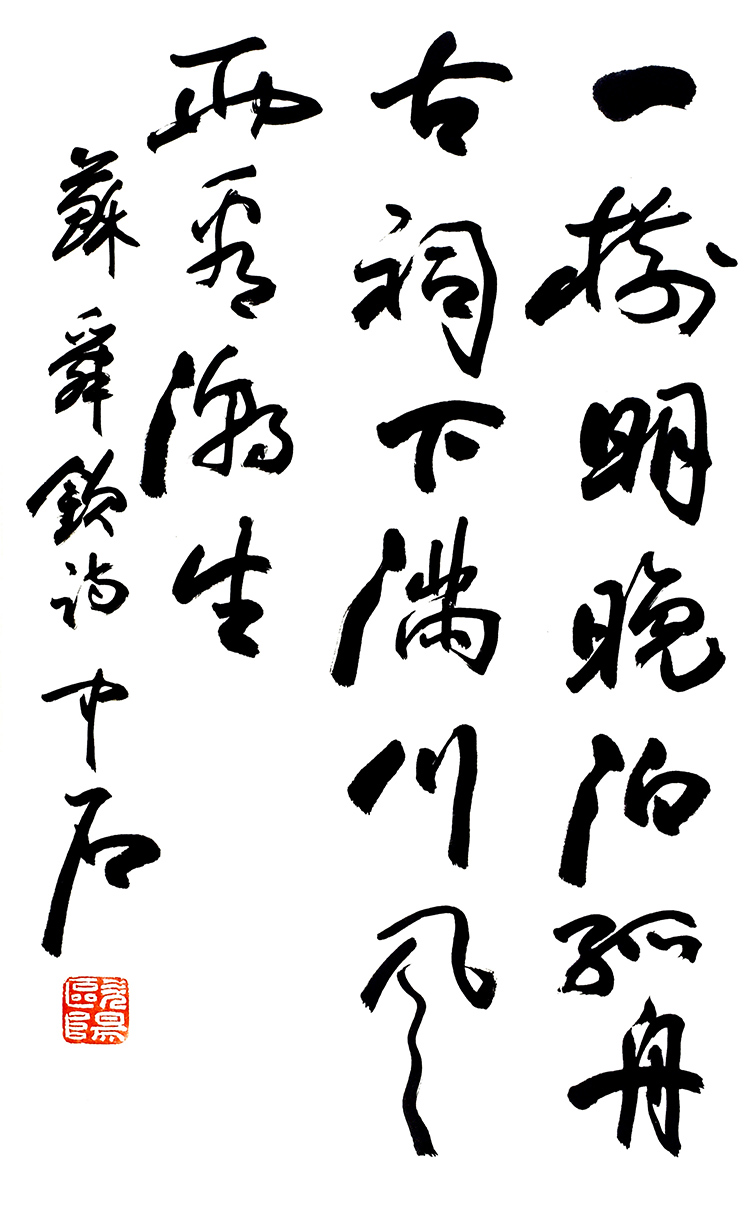 一樹明晚泊孤舟
古祠下滿川风
雨看潮生
蘇舜欽詩 中石
歐陽